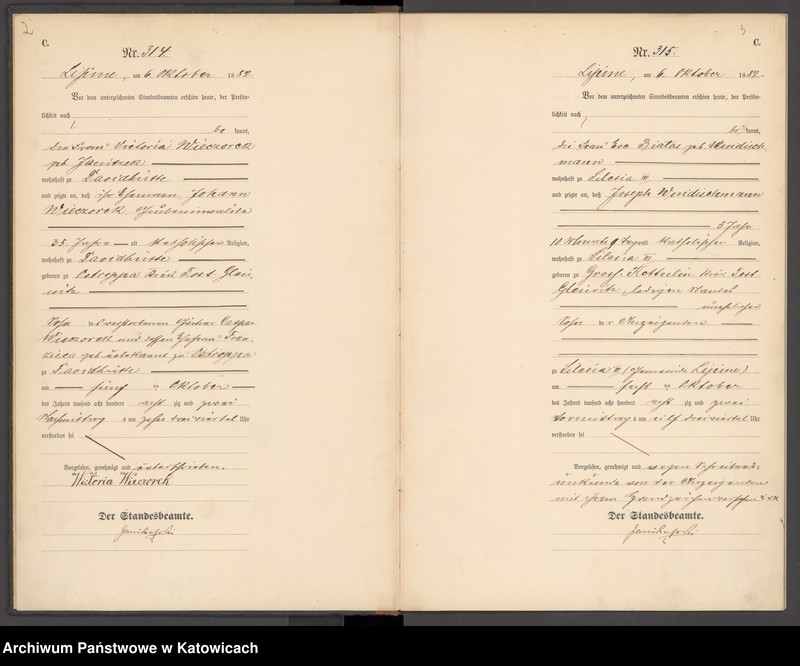 2
C.
Nr. 314.
Lipine, am 6. Oktober 1882.
Vor dem unterzeichneten Standesbeamten erschien heute, der Persön-
lichkeit nach
be kannt,
die Frau Victoria Wieczorek
geb.
wohnhaft zu Davidhütte
und zeigte an, daß ihr Ehemann Johann
Wieczorek
35 Jahre alt katholischer Religion,
wohnhaft zu Davidhütte
geboren zu Ostroppa Kreis Tost Glei-
witz
Sohn des verstorbenen
Wieczorek und dessen Ehefrau Fran-
geb. unbekannt zu Ostroppa
zu Davidhütte
am fünf ten Oktober
des Jahres tausend acht hundert acht zig und zwei
Nachmittag s um zehn dreiviertel Uhr
verstorben sei
Vorgelesen, genehmigt und unterschrieben.
Victoria Wieczorek
Der Standesbeamte.
3
C.
Nr. 315.
Lipine, am 6. Oktober 1882.
Vor dem unterzeichneten Standesbeamten erschien heute, der Persön-
lichkeit nach
be kannt,
die Frau Eva Bialas geb. Wendisch-
mann
wohnhaft zu Silesia VI
und zeigte an, daß Joseph Wendischmann
5 Jahr
10 Monate 9 Tage alt katholischer Religion,
wohnhaft zu Silesia VI
geboren zu Gross Kottulin Kreis Tost
Gleiwitz, ledigen Standes
unehelicher
Sohn der Anzeigenden
zu Silesia VI (Gemeinde Lipine)
am sechs ten Oktober
des Jahres tausend acht hundert acht zig und zwei
Vormittag s um elf dreiviertel Uhr
verstorben sei
Vorgelesen, genehmigt und wegen Schreibens-
unkunde von der Anzeigenden
mit ihrem Handzeichen versehen xxx
Der Standesbeamte.
Archiwum Państwowe w Katowicach